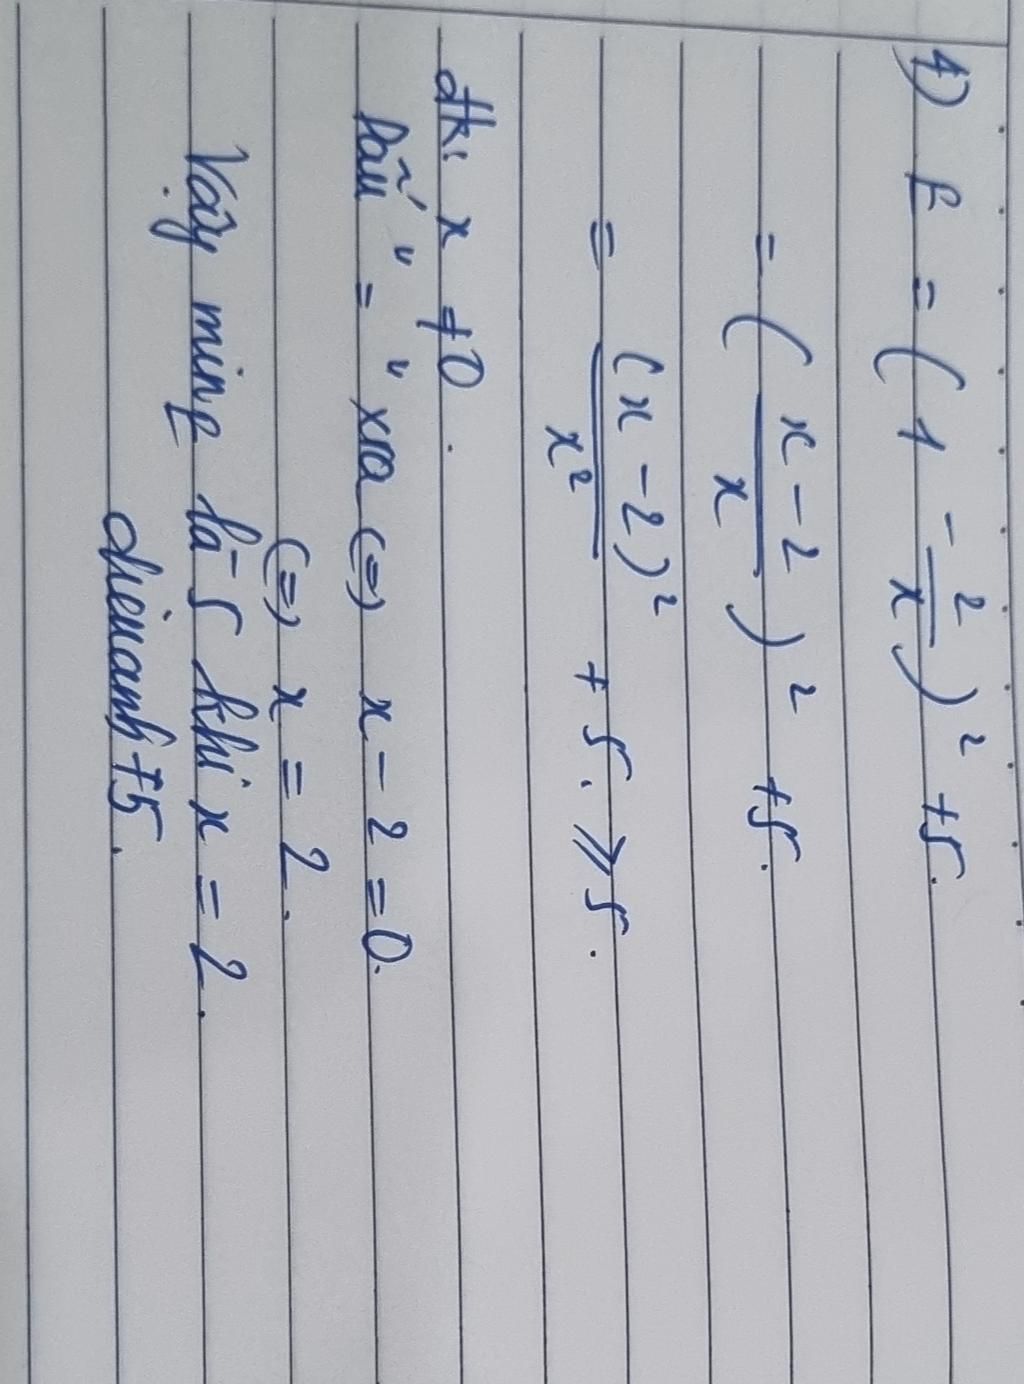 1) P = (1 - 2/x)² + 5.
= (x - 2/x)² + 5.
= (x - 2)²/x² + 5. ⩾ 5.
đk: x ≠ 0.
Dấu " = " xra (=) x - 2 = 0.
(=) x = 2.
Vậy minP là 5 khi x = 2.
chieuanh75.